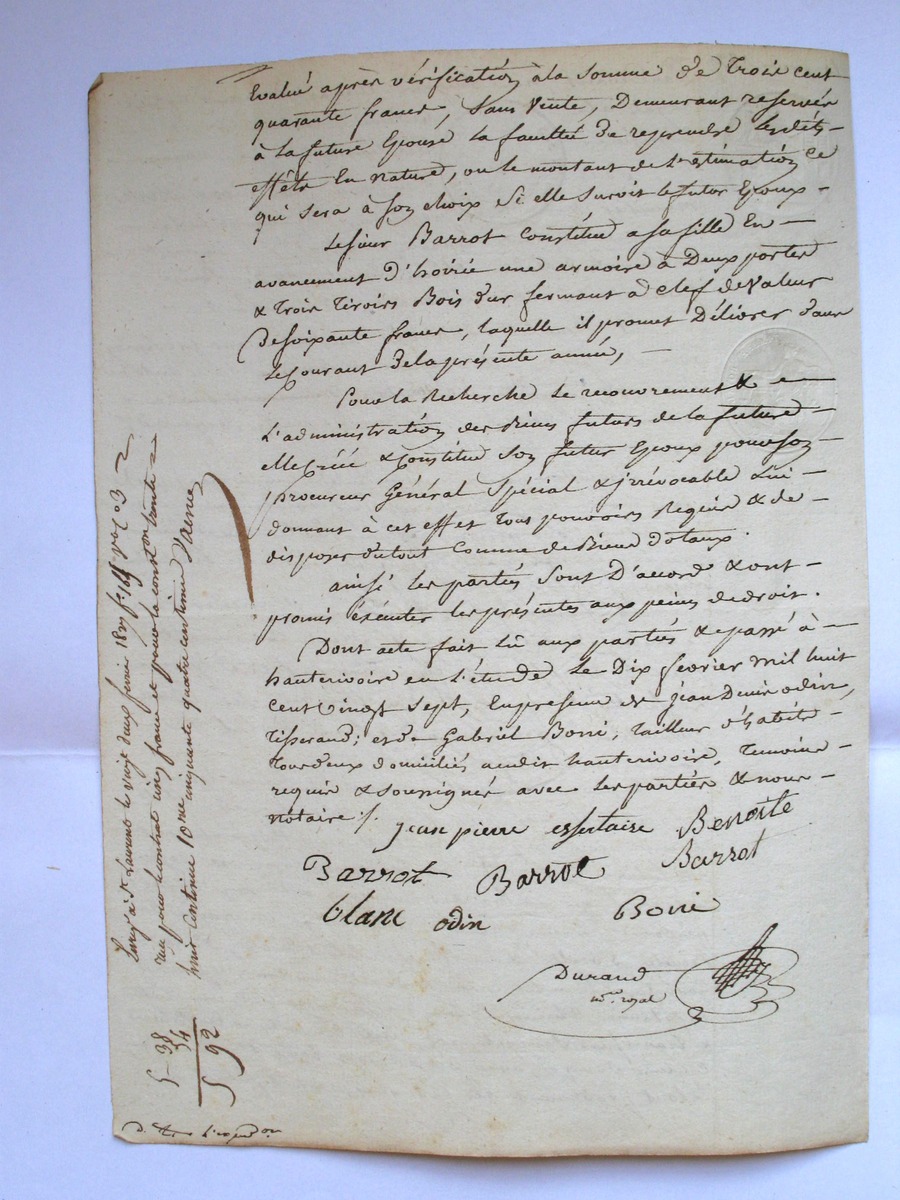 Evalué après vérification à la somme de Trois cent
quarante francs, sans vente, Demeurant reservée
à la future Epouse la faculté de reprendre lesdits
effets En nature, ou le montant de l'estimation ce
qui sera à son choix si elle survit le futur Epoux.
Le sieur Barrot Constitue a sa fille En
avancement d'hoirie une armoire à Deux portes
& Trois Tiroirs Bois dur fermant à clef de valeur
De soixante francs, laquelle il promet Délivrer dans
Le Courant de la présente année,
Pour la Recherche le recouvrement &
L'administration des Biens futurs de la future
elle Créé & Constitue son futur Epoux pour son
procureur Général Spécial & irrévocable Lui
donnant à cet effet tous pouvoirs Requis & de
disposer du tout Comme de Biens Dotaux.
ainsi les parties sont D'accord & ont
promis éxécuter les présentes aux peines de droit.
Dont acte fait lû aux parties & passé à
hauterivoire en l'étude le Dix fevrier mil huit
cent vingt sept, En présence de jean Denis odin,
Tisserand; et de Gabriel Borri, tailleur d'habits
tous deux domiciliés audit hauterivoire, Temoins
requis & soussignés avec les parties & nous
notaire ./.
jean pierre essertaise Benoite
Barrot Barrot Barrot
blanc odin Borri
Durand
nre royal
Enreg. à St Laurent le vingt deux fevrier 1827 fo 169 Vo Co 3
reçu pour contrat cinq francs et pour la const.on trente
huit centimes 10me cinquante quatre centimes
Darenne
5-38
54
5 92